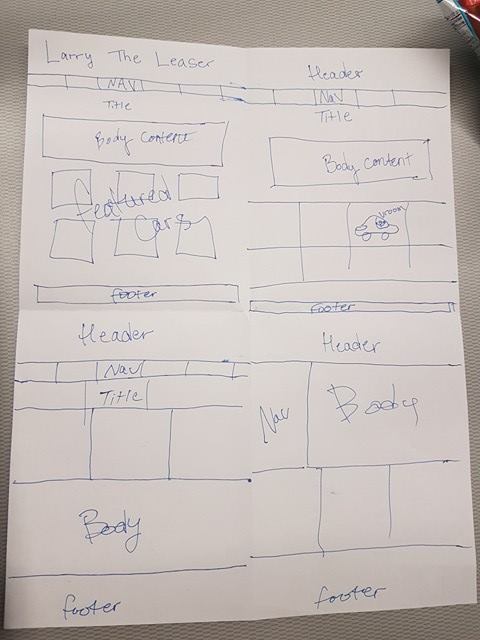 Larry The Leaser
NAV
Title
Body Content
featured
Cars
footer
Header
Nav
Title
Body content
vroom
footer
Header
Nav
Title
Body
footer
Header
Nav
Body
footer